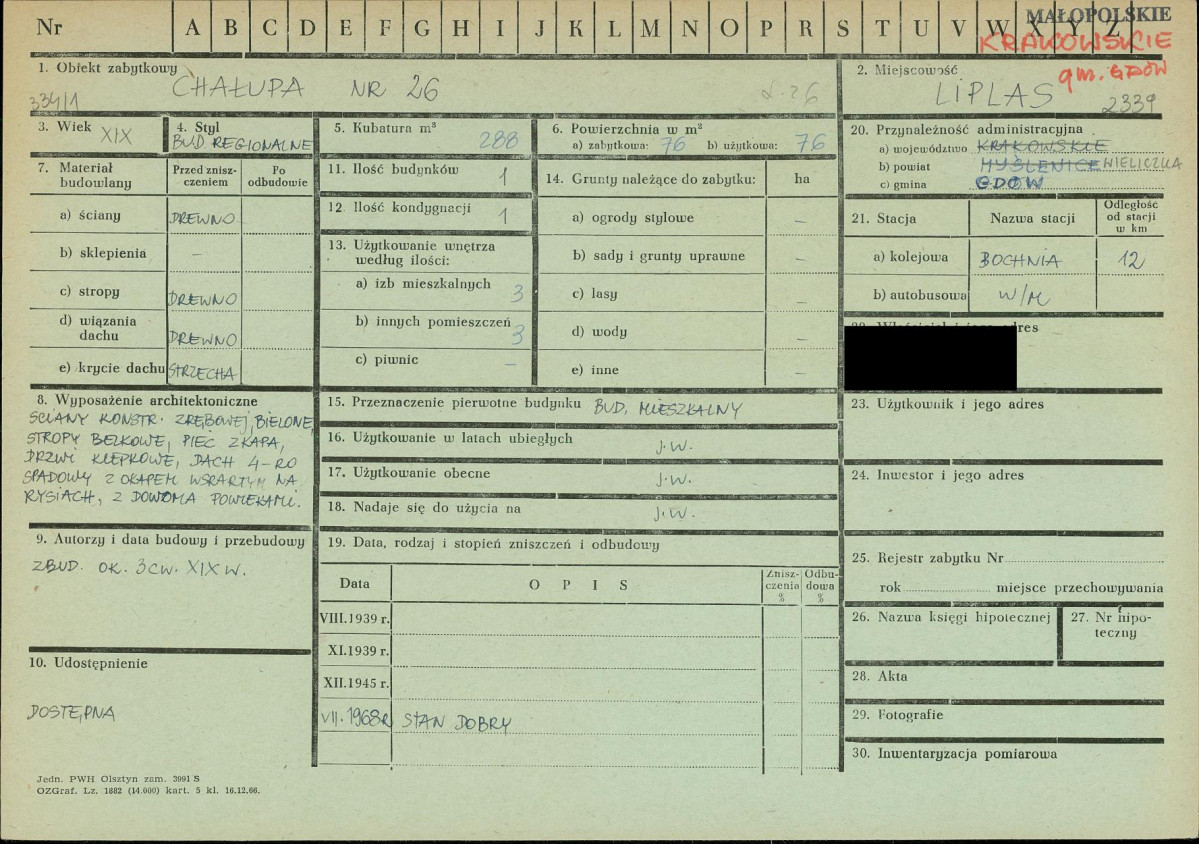 Nr A B C D E F G H I J K L M N O P R S T U V W X Y Z
MAŁOPOLSKIE
KRAKOWSKIE
gm. GDÓW
1. Obiekt zabytkowy
CHAŁUPA NR 26
334/1
2. Miejscowość
LIPLAS 2339
3. Wiek XIX
4. Styl
BUD. REGIONALNE
5. Kubatura m³ 288
6. Powierzchnia w m²
a) zabytkowa: 76 b) użytkowa: 76
7. Materiał budowlany
Przed zniszczeniem
Po odbudowie
a) ściany DREWNO
b) sklepienia –
c) stropy DREWNO
d) wiązania dachu DREWNO
e) krycie dachu STRZECHA
8. Wyposażenie architektoniczne
ŚCIANY KONSTR. ZRĘBOWEJ, BIELONE,
STROPY BELKOWE, PIEC Z KAPA,
DRZWI KLEPKOWE, DACH 4-RO
SPADOWY Z OKAPEM WSPARTYM NA
RYSIACH, Z DOWOMA POWIEKAMI.
9. Autorzy i data budowy i przebudowy
ZBUD. OK. 3 CW. XIX W.
10. Udostępnienie
DOSTĘPNA
11. Ilość budynków 1
12. Ilość kondygnacji 1
13. Użytkowanie wnętrza według ilości:
a) izb mieszkalnych 3
b) innych pomieszczeń 3
c) piwnic –
14. Grunty należące do zabytku: ha
a) ogrody stylowe –
b) sady i grunty uprawne –
c) lasy –
d) wody –
e) inne –
15. Przeznaczenie pierwotne budynku BUD. MIESZKALNY
16. Użytkowanie w latach ubiegłych J.W.
17. Użytkowanie obecne J.W.
18. Nadaje się do użycia na J.W.
19. Data, rodzaj i stopień zniszczeń i odbudowy
Data OPIS Zniszczenia % Odbudowa %
VIII.1939 r.
XI.1939 r.
XII.1945 r.
VII.1968R STAN DOBRY
20. Przynależność administracyjna
a) województwo KRAKOWSKIE
b) powiat MYŚLENICE WIELICZKA
c) gmina GDÓW
21. Stacja Nazwa stacji Odległość od stacji w km
a) kolejowa BOCHNIA 12
b) autobusowa W/M
23. Użytkownik i jego adres
24. Inwestor i jego adres
25. Rejestr zabytku Nr
rok miejsce przechowywania
26. Nazwa księgi hipotecznej
27. Nr hipoteczny
28. Akta
29. Fotografie
30. Inwentaryzacja pomiarowa
Jedn. PWH Olsztyn zam. 3991 S
OZGraf. Lz. 1882 (14.000) kart. 5 kl. 16.12.66.